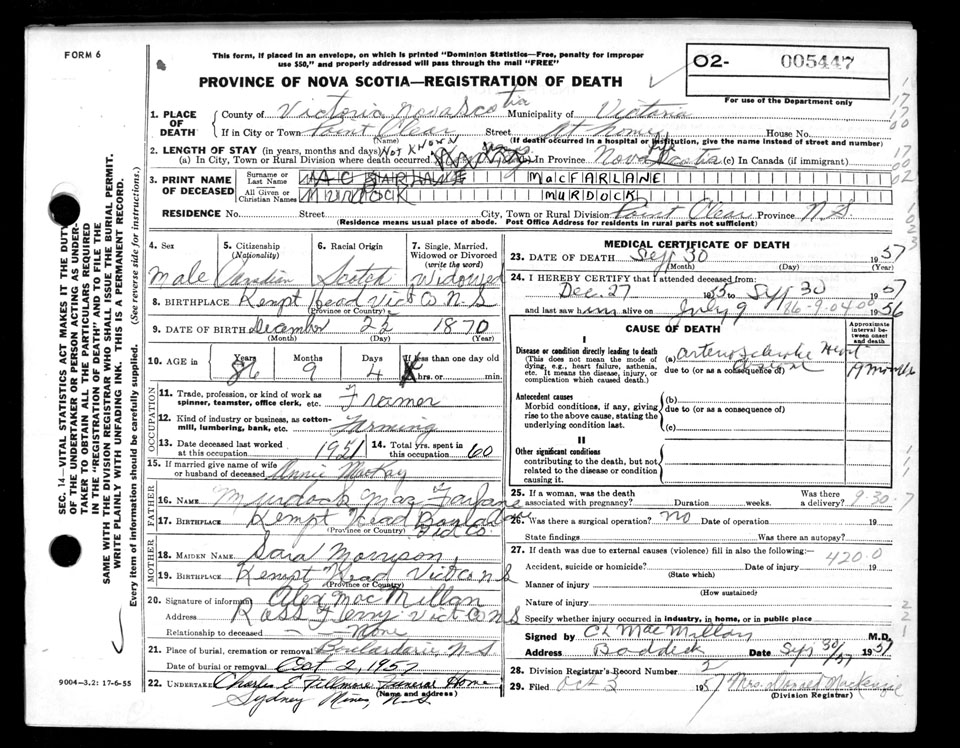 FORM 6
This form, if placed in an envelope, on which is printed "Dominion Statistics—Free, penalty for improper
use $50," and properly addressed will pass through the mail "FREE"
PROVINCE OF NOVA SCOTIA—REGISTRATION OF DEATH
O2- 005447
For use of the Department only
1. PLACE OF DEATH
County of Victoria Nova Scotia Municipality of Victoria
If in City or Town Point Clear, Street At Home House No.
(Name) (If death occurred in a hospital or institution, give the name instead of street and number)
2. LENGTH OF STAY (in years, months and days) Not Known
(a) In City, Town or Rural Division where death occurred (b) In Province Nova Scotia (c) In Canada (if immigrant)
3. PRINT NAME OF DECEASED
Surname or Last Name MACFARLANE
All Given or Christian Names MURDOCK MURDOCK
RESIDENCE No. Street City, Town or Rural Division Point Clear Province N.S.
(Residence means usual place of abode. Post Office Address for residents in rural parts not sufficient)
4. Sex Male
5. Citizenship (Nationality) Canadian
6. Racial Origin Scotch
7. Single, Married, Widowed or Divorced (write the word) Widowed
8. BIRTHPLACE Kempt Head Vict Co. N-S
(Province or Country)
9. DATE OF BIRTH December 22 1870
(Month) (Day) (Year)
10. AGE in Years Months Days If less than one day old
86 9 4 hrs. or min.
OCCUPATION
11. Trade, profession, or kind of work as spinner, teamster, office clerk, etc. Framer
12. Kind of industry or business, as cotton-mill, lumbering, bank, etc. Farming
13. Date deceased last worked at this occupation 1951
14. Total yrs. spent in this occupation 60
15. If married give name of wife or husband of deceased Annie MacKay
FATHER
16. NAME Murdock Mac Farlane
17. BIRTHPLACE Kempt Head Boulardarie Vict Co.
(Province or Country)
MOTHER
18. MAIDEN NAME Sara Morrison
19. BIRTHPLACE Kempt Head Vict Co N S
(Province or Country)
20. Signature of informant Alex MacMillan
Address Ross Ferry Vict Co N S
Relationship to deceased — None
21. Place of burial, cremation or removal Boulardarie, N-S.
Date of burial or removal Oct 2, 1957
22. UNDERTAKER Charles E Fillmore Funeral Home
(Name and address)
Sydney Mines, N.S.
9004-3.2: 17-6-55
MEDICAL CERTIFICATE OF DEATH
23. DATE OF DEATH Sept 30 1957
(Month) (Day) (Year)
24. I HEREBY CERTIFY that I attended deceased from:
Dec. 27 1955 to Sept 30 1957
and last saw him alive on July 9 1956
86-9-04
CAUSE OF DEATH
Approximate interval between onset and death
I
Disease or condition directly leading to death (a) arteriosclerotic Heart Disease
(This does not mean the mode of dying, e.g., heart failure, asthenia, etc. It means the disease, injury, or complication which caused death.)
due to (or as a consequence of)
Antecedent causes
Morbid conditions, if any, giving rise to the above cause, stating the underlying condition last.
(b)
due to (or as a consequence of)
(c)
II
Other significant conditions
contributing to the death, but not related to the disease or condition causing it.
25. If a woman, was the death associated with pregnancy? Duration weeks. Was there a delivery?
9-30-7
26. Was there a surgical operation? No Date of operation 19
State findings Was there an autopsy?
27. If death was due to external causes (violence) fill in also the following:—
420.0
Accident, suicide or homicide? Date of injury 19
(State which)
Manner of injury
(How sustained)
Nature of injury
Specify whether injury occurred in industry, in home, or in public place
Signed by C L MacMillan M.D.
Address Baddeck Date Sept 30/57 1957
28. Division Registrar's Record Number 2
29. Filed Oct 2 1957 Mrs. MacKenzie
(Division Registrar)
SEC. 14—VITAL STATISTICS ACT MAKES IT THE DUTY
OF THE UNDERTAKER OR PERSON ACTING AS UNDER-
TAKER TO OBTAIN ALL THE PARTICULARS REQUIRED
IN THE "REGISTRATION OF DEATH" AND TO FILE THE
SAME WITH THE DIVISION REGISTRAR WHO SHALL ISSUE THE BURIAL PERMIT.
WRITE PLAINLY WITH UNFADING INK. THIS IS A PERMANENT RECORD.
Every item of information should be carefully supplied. (See reverse side for instructions.)